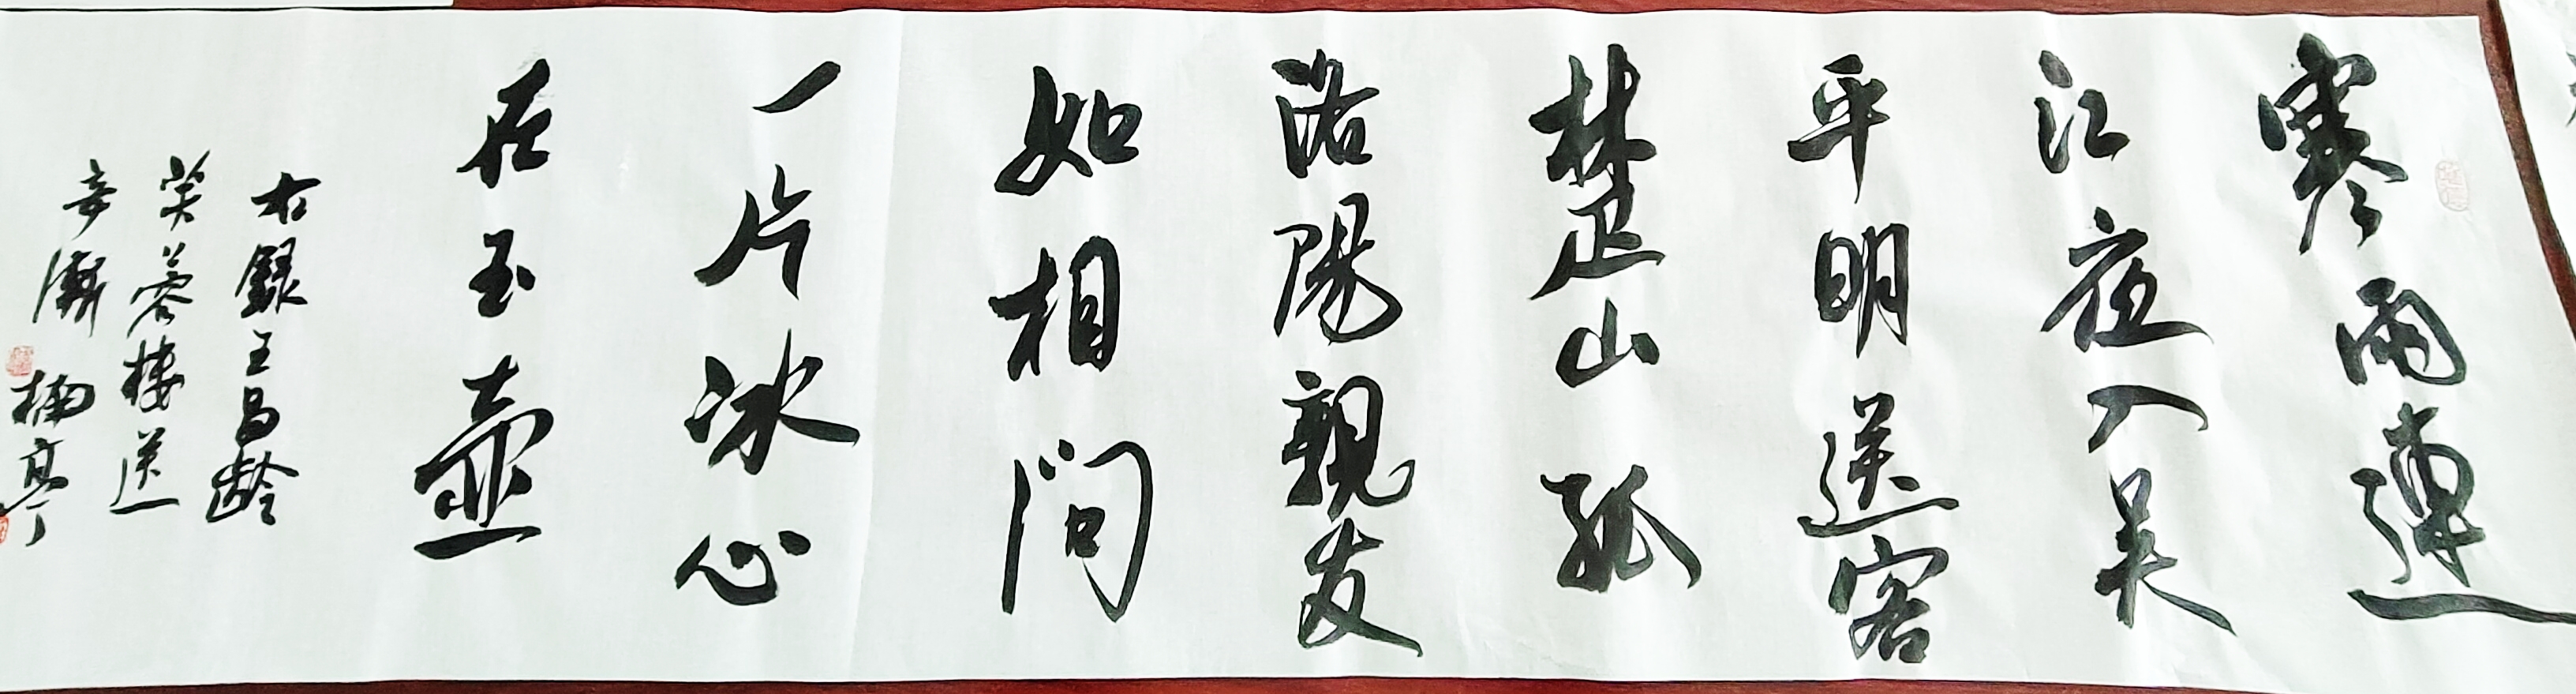 寒雨連
江夜入吴
平明送客
楚山孤
洛陽親友
如相問
一片冰心
在玉壺
右錄王昌龄
芙蓉楼送
辛漸
楠亭